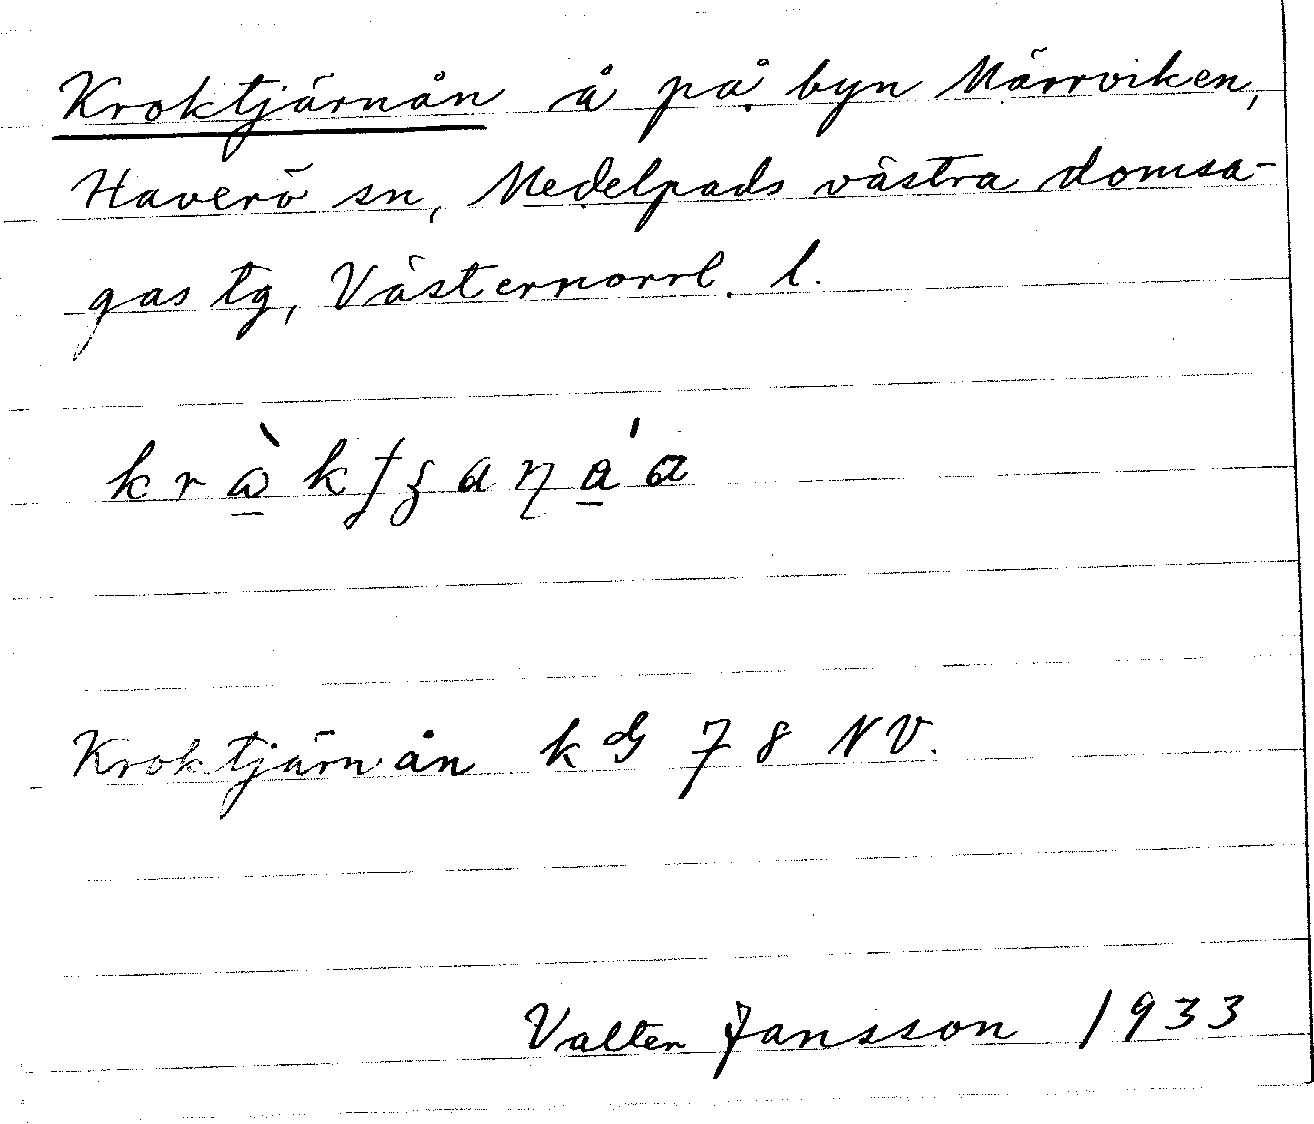 Kroktjärnån å på byn Märrviken,
Haverö sn, Medelpads västra domsa-
gas tg, Västernorrl. l.
Kroktjärnån kG 78 NV.
Valter Jansson 1933